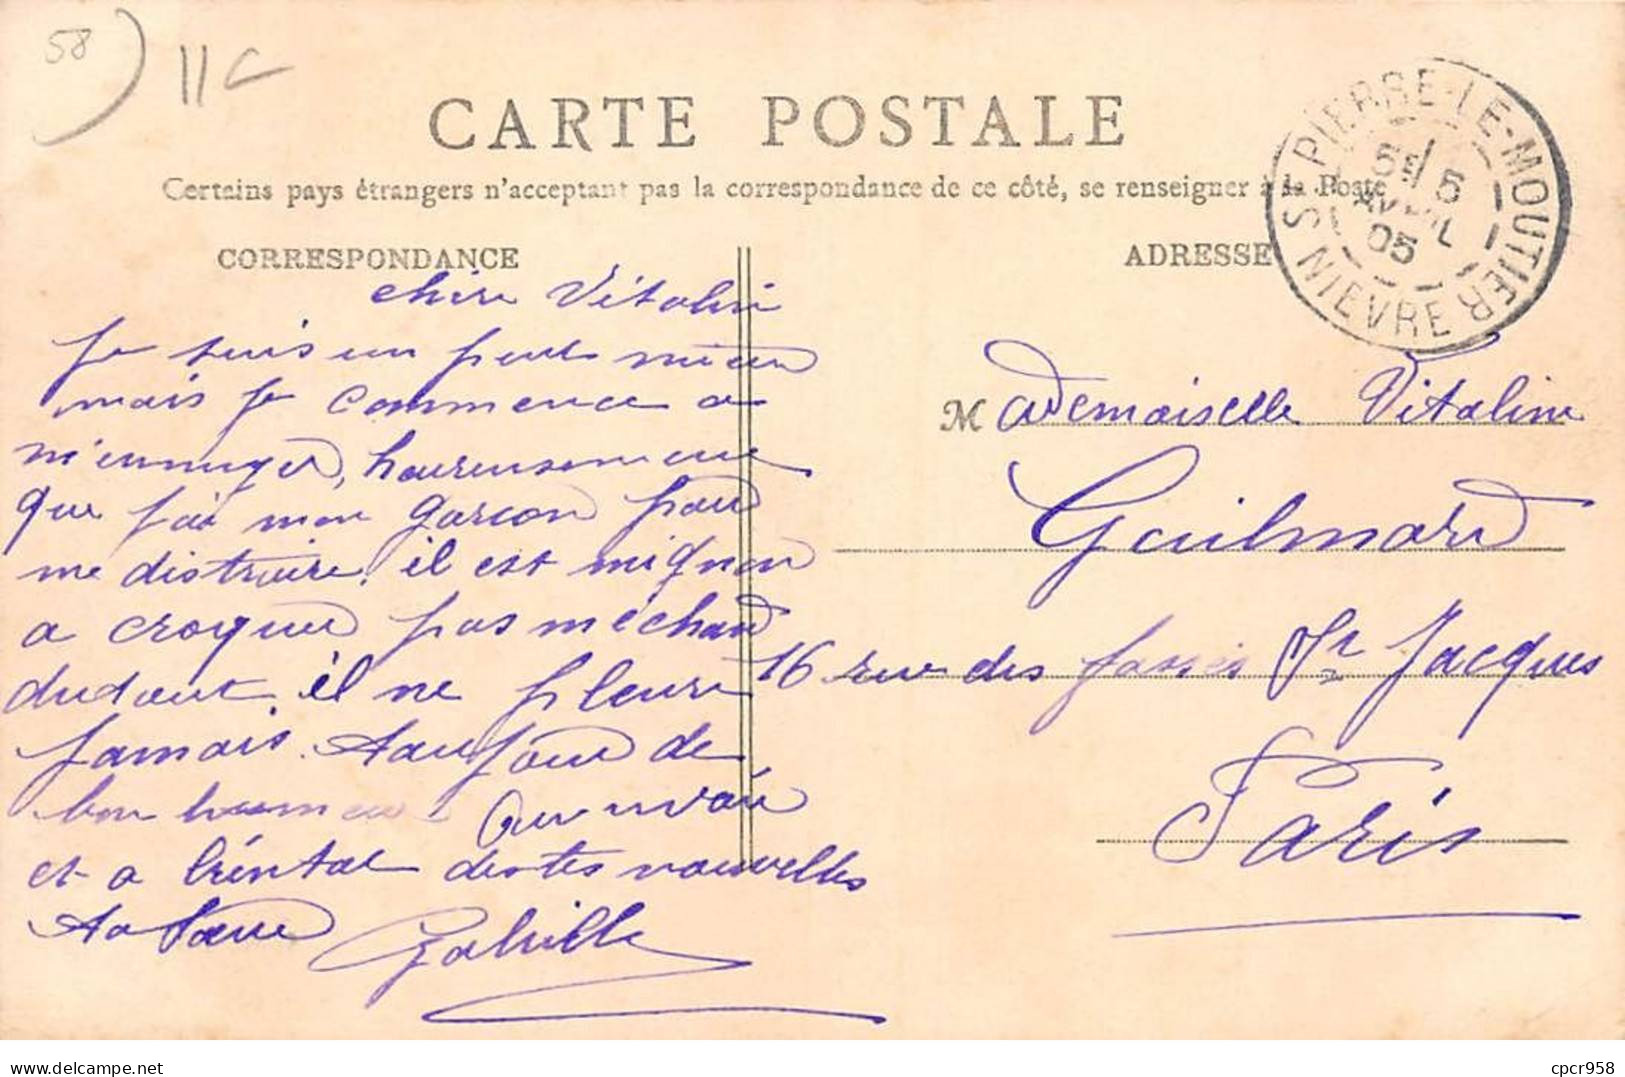 58
11c
CARTE POSTALE
Certains pays étrangers n'acceptant pas la correspondance de ce côté, se renseigner à la Poste
ST PIERRE-LE-MOUTIER
NIEVRE
5E / 5
AVRIL
05
CORRESPONDANCE
ADRESSE
chère Vitalin
Je suis un peut mieu
mais je commence a
m'ennuyer, heureusemeue
que j'ai mon garçon pour
me distraire, il est mignon
a croquer pas méchand
dutout, il ne pleure
jamais. toujour de
bon humeur. Au revoir
et a bientot des tes nouvelles
Ta soeur Gabrille
Mademoiselle Vitaline
Guilmard
16 rue des fossés St Jacques
Paris
Delcampe.net
cpcr958